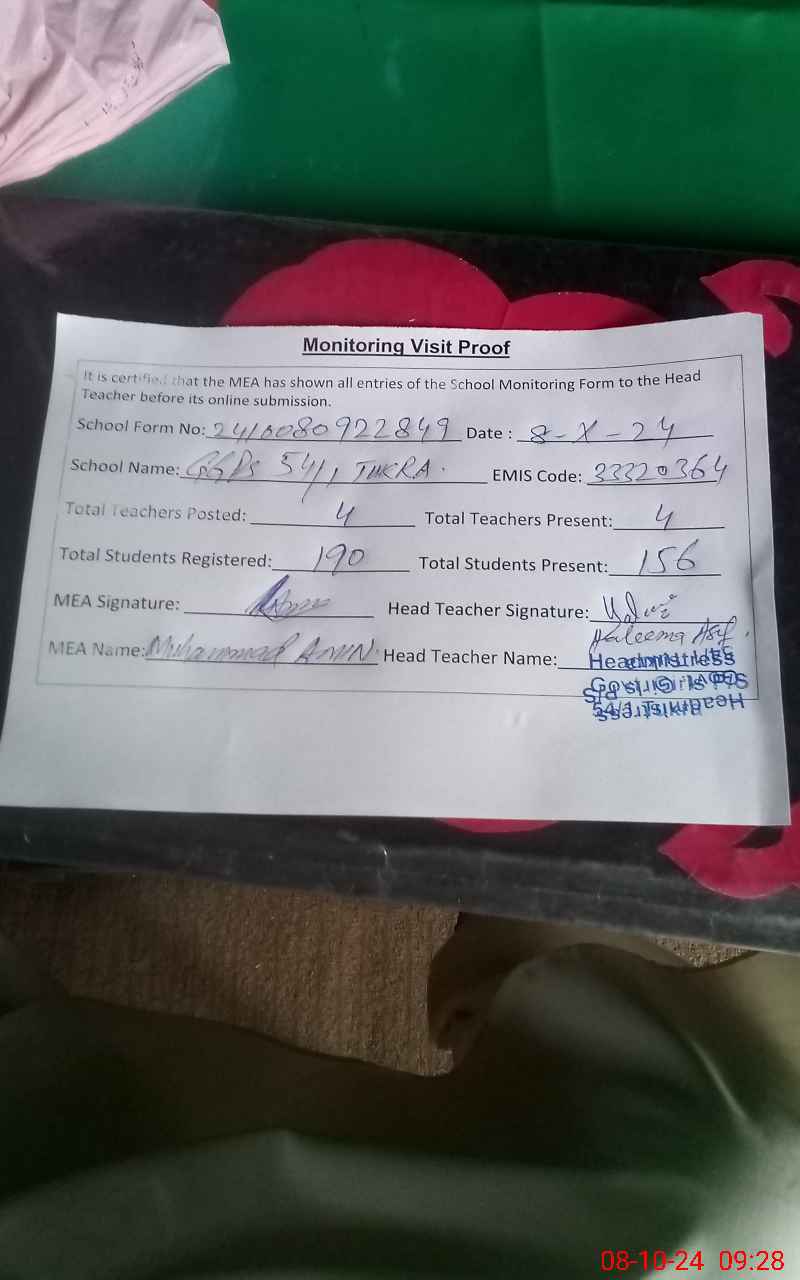 Monitoring Visit Proof
It is certified that the MEA has shown all entries of the School Monitoring Form to the Head
Teacher before its online submission.
School Form No: 2410080922849 Date : 8-X-24
School Name: GGPS 54/1 EMIS Code: 33320364
Total Teachers Posted: 4 Total Teachers Present: 4
Total Students Registered: 190 Total Students Present: 156
MEA Signature: Head Teacher Signature:
Haleema Asif
MEA Name: Muhammad Amin Head Teacher Name:
Headmistress
54/1
08-10-24 09:28